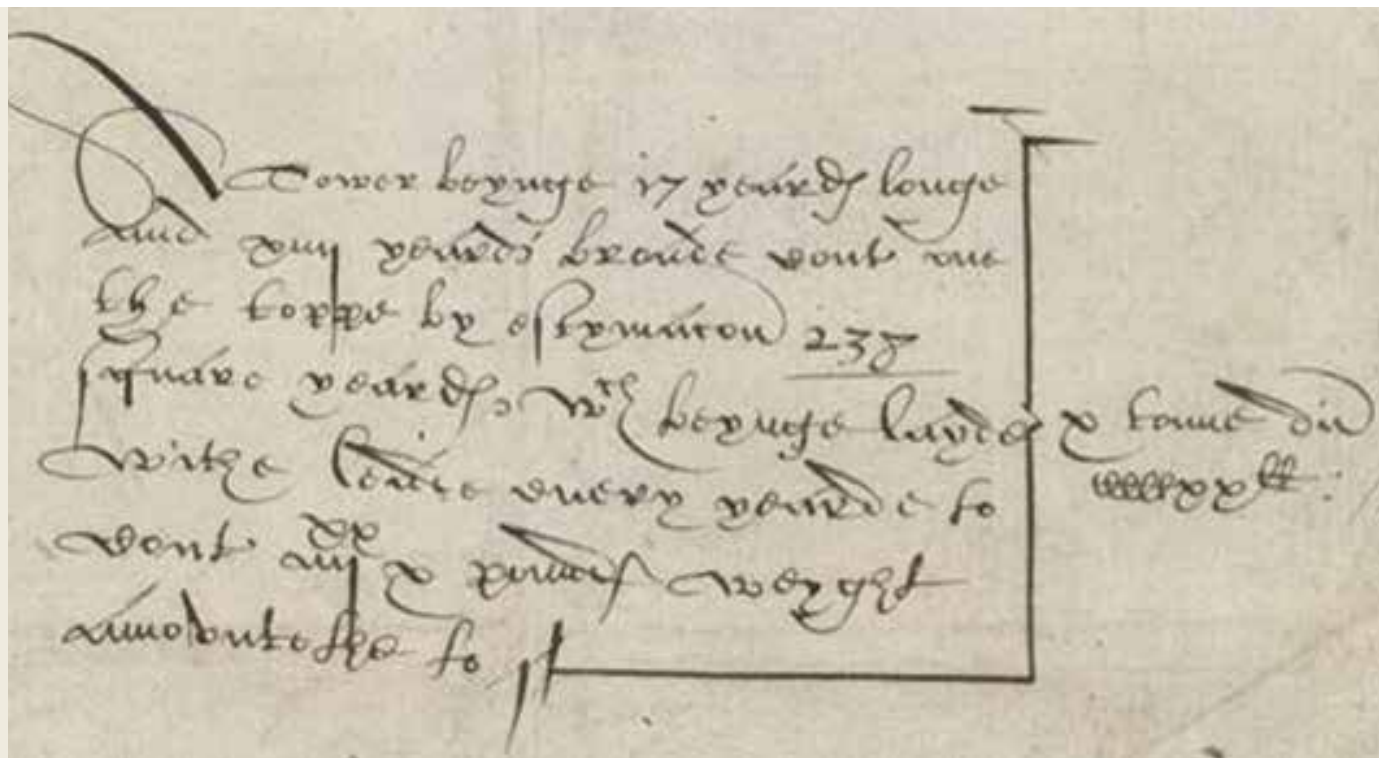 Tower beynge 17 yeardes longe
and xiiij yeardes broade cont one
the toppe by estymacon 238
square yeardes, wch beynge layde
withe leade euery yearde to
cont iiijxx x poundes weyght
amountethe to
x tonne di
CCCCxx ll: